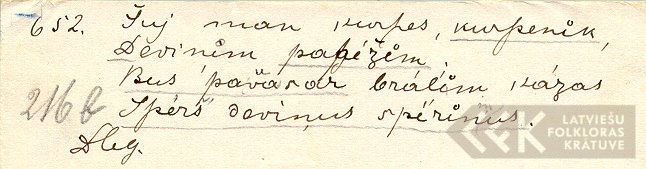 652. Šuj man kurpes, kurpenīk,
Deviņēm papēžēm,
Bus pavasar brālēm kāzas
216b
Spērš deviņus spērīnus.
Dleg.
LATVIEŠU
FOLKLORAS
KRĀTUVE